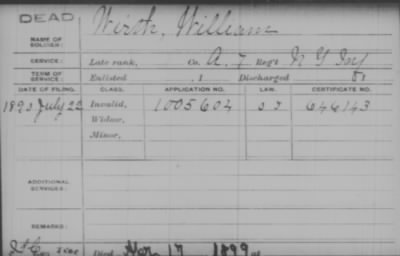 DEAD
NAME OF SOLDIER: Wirth, William
SERVICE: Late rank, Co. A. 7 Reg't N Y Inf
TERM OF SERVICE: Enlisted , 1 Discharged
DATE OF FILING. CLASS. APPLICATION NO. LAW. CERTIFICATE NO.
1890 July 22 Invalid, 1005604 646143
Widow,
Minor,
ADDITIONAL SERVICES:
REMARKS:
Died 17 1899